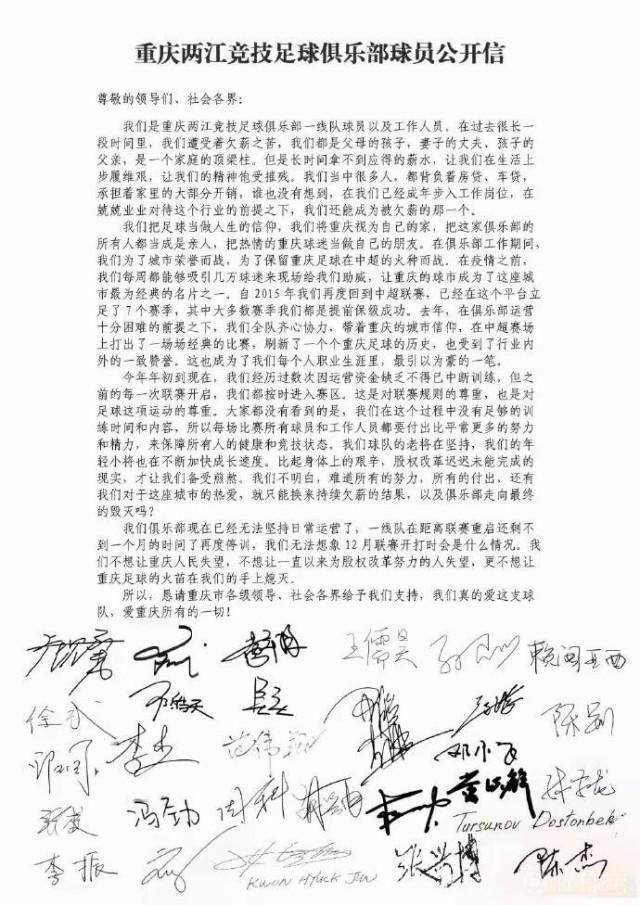 重庆两江竞技足球俱乐部球员公开信
尊敬的领导们、社会各界：
我们是重庆两江竞技足球俱乐部一线队球员以及工作人员。在过去很长一
段时间里，我们遭受着欠薪之苦，我们都是父母的孩子，妻子的丈夫、孩子的
父亲，是一个家庭的顶梁柱。但是长时间拿不到应得的薪水，让我们在生活上
步履维艰，让我们的精神饱受摧残。我们当中很多人，都背负着房贷、车贷，
承担着家里的大部分开销，谁也没有想到，在我们已经成年步入工作岗位，在
兢兢业业对待这个行业的前提之下，我们还能成为被欠薪的那一个。
我们把足球当做人生的信仰，我们将重庆视为自己的家，把这家俱乐部的
所有人都当成是亲人，把热情的重庆球迷当做自己的朋友。在俱乐部工作期间，
我们为了城市荣誉而战，为了保留重庆足球在中超的火种而战。在疫情之前，
我们每周都能够吸引几万球迷来现场给我们助威，让重庆的球市成为了这座城
市最为经典的名片之一。自 2015 年我们再度回到中超联赛，已经在这个平台立
足了 7 个赛季，其中大多数赛季我们都是提前保级成功。去年，在俱乐部运营
十分困难的前提之下，我们全队齐心协力，带着重庆的城市信仰，在中超赛场
上打出了一场场经典的比赛，刷新了一个个重庆足球的历史，也受到了行业内
外的一致赞誉。这也成为了我们每个人职业生涯里，最引以为豪的一笔。
今年年初到现在，我们经历过数次因运营资金缺乏不得已中断训练，但之
前的每一次联赛开启，我们都按时进入赛区。这是对联赛规则的尊重，也是对
足球这项运动的尊重。大家都没有看到的是，我们在这个过程中没有足够的训
练时间和内容，所以每场比赛所有球员和工作人员都要付出比平常更多的努力
和精力，来保障所有人的健康和竞技状态。我们球队的老将在坚持，我们的年
轻小将也在不断加快成长速度。比起身体上的艰辛，股权改革迟迟未能完成的
现实，才让我们备受煎熬。我们不明白，难道所有的努力，所有的付出，还有
我们对于这座城市的热爱，就只能换来持续欠薪的结果，以及俱乐部走向最终
的毁灭吗？
我们俱乐部现在已经无法坚持日常运营了，一线队在距离联赛重启还剩不
到一个月的时间了再度停训，我们无法想象 12 月联赛开打时会是什么情况。我
们不想让重庆人民失望，不想让一直以来为股权改革努力的人失望，更不想让
重庆足球的火苗在我们的手上熄灭。
所以，恳请重庆市各级领导、社会各界给予我们支持，我们真的爱这支球
队，爱重庆所有的一切！
王儒昊
陈
李
邓小飞
冯劲 周科 黄 敏
Tursunov Dostonbek
李振
KWON HYUCK JIN
张兴博 陈杰